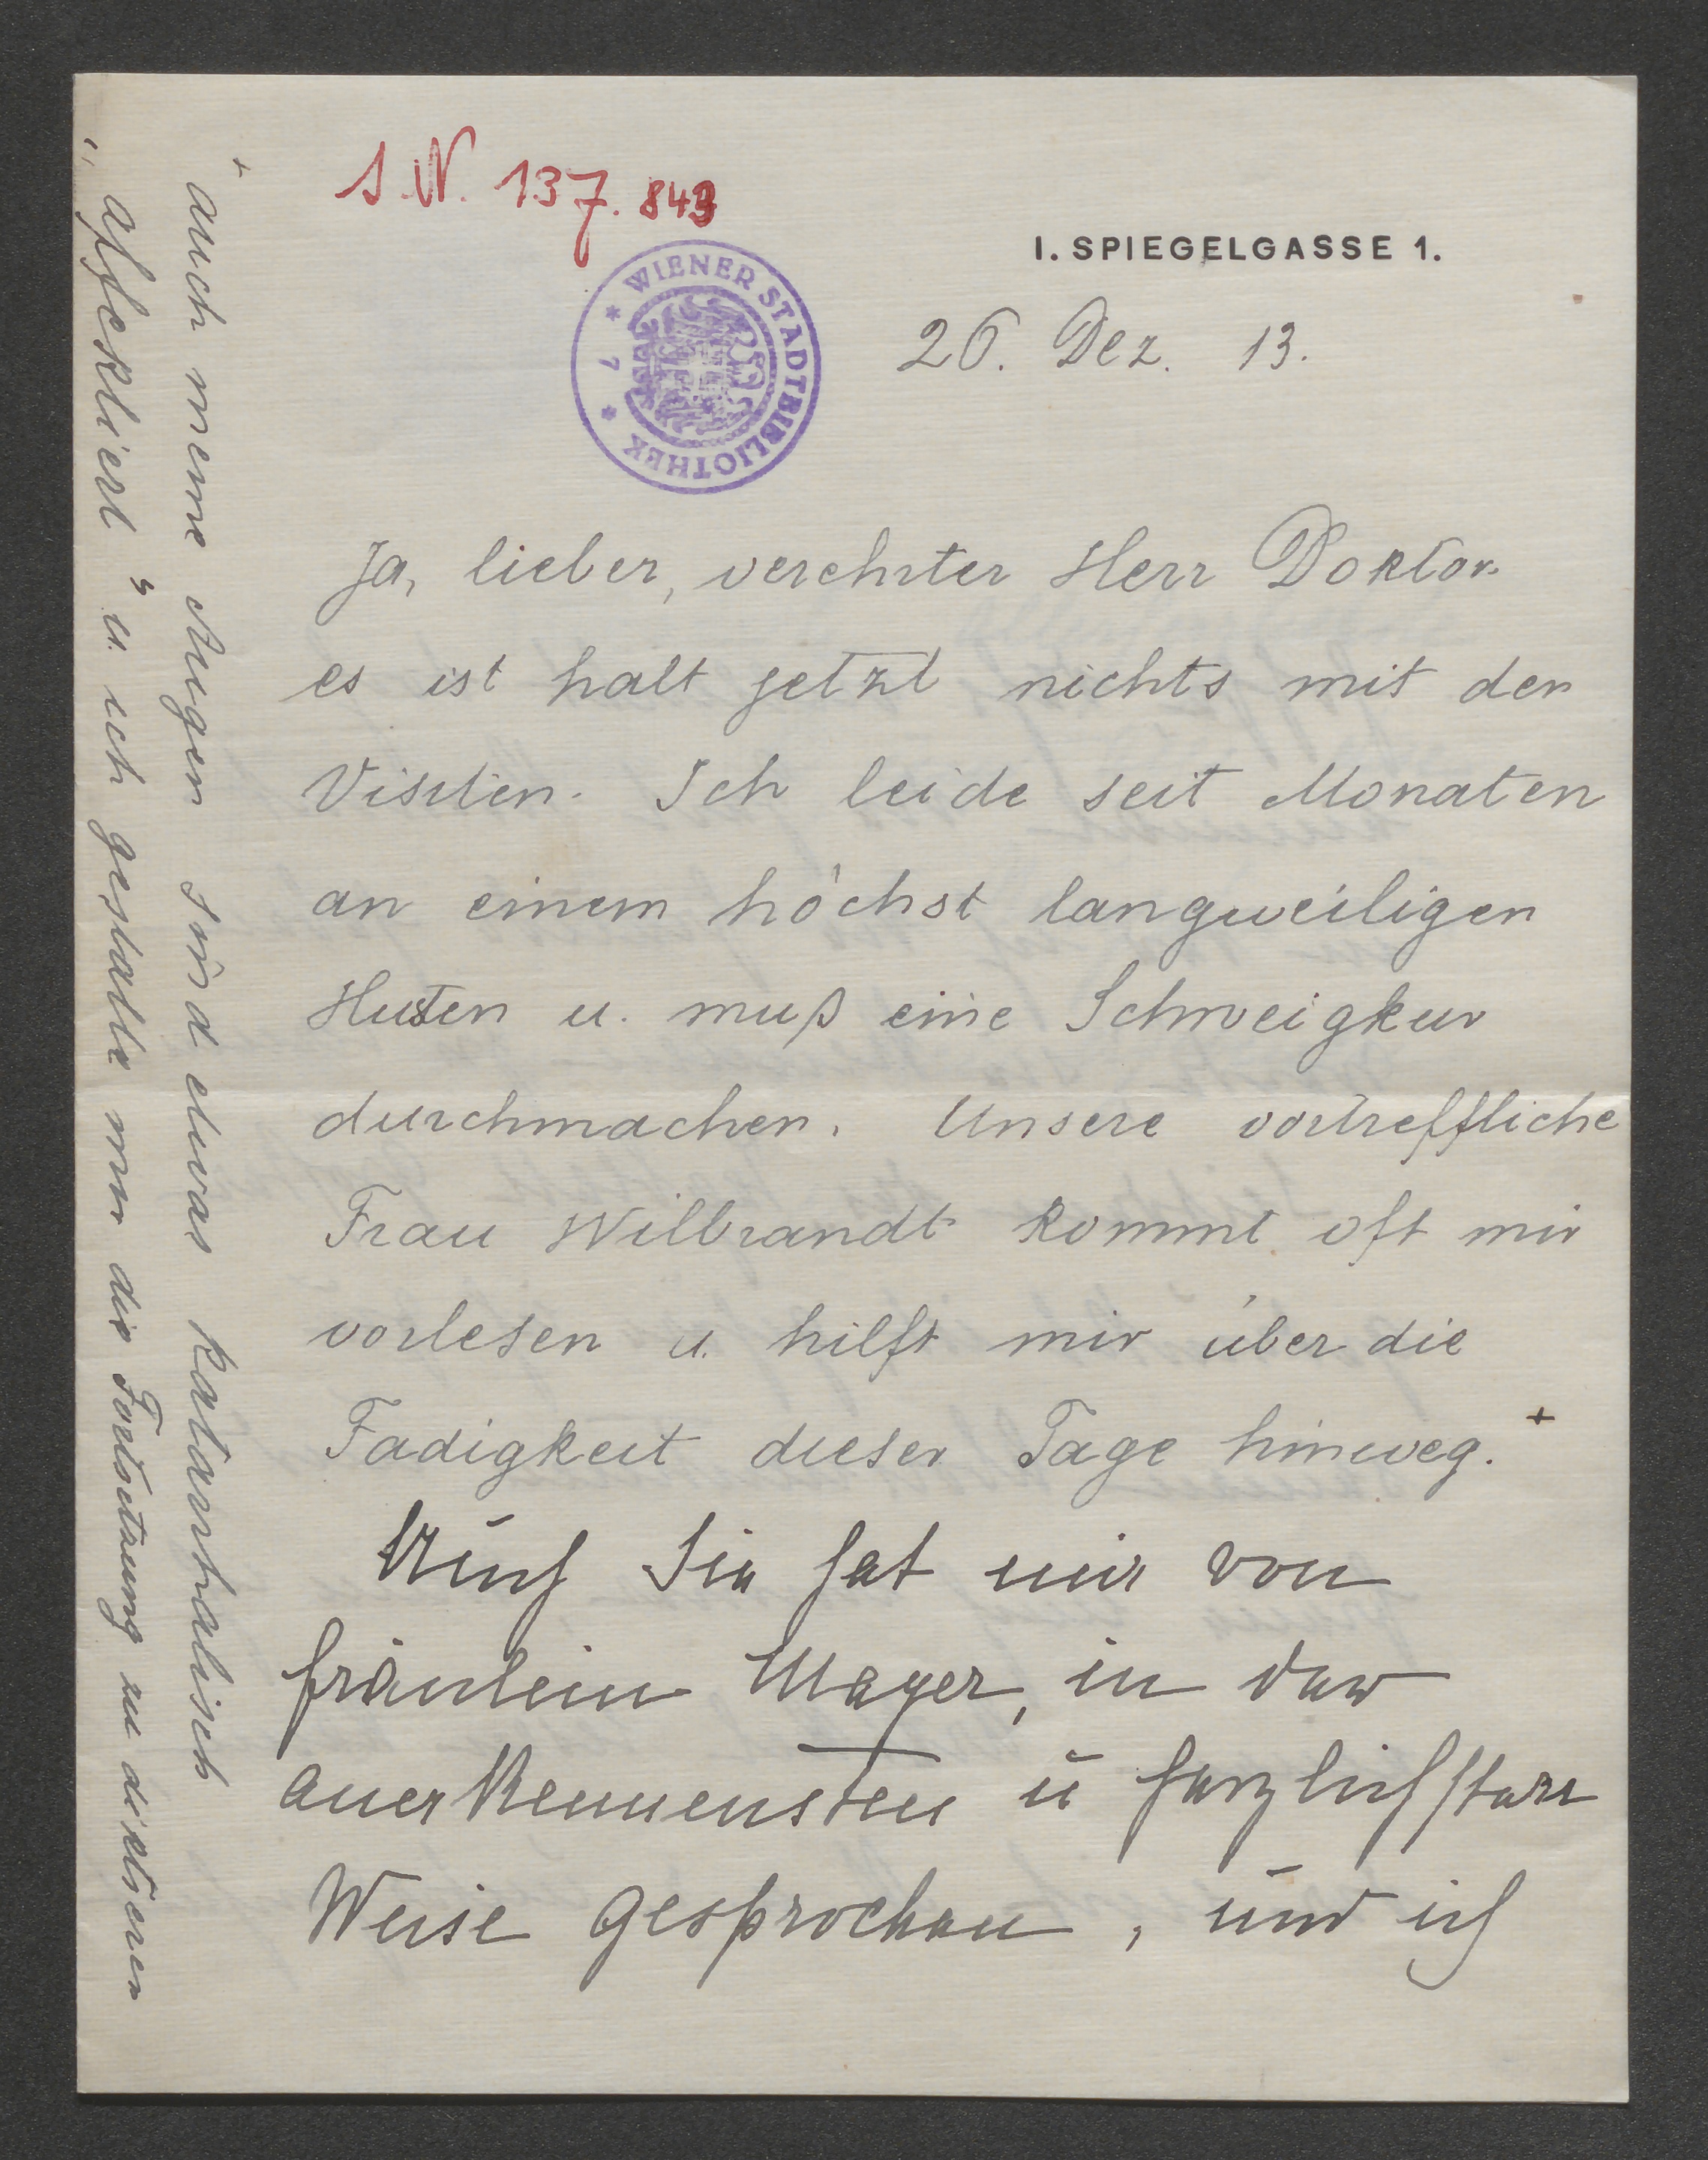 I. N. 137.843
I. SPIEGELGASSE 1.
WIENER STADTBIBLIOTHEK
7
26. Dez. 13.
Ja, lieber, verehrter Herr Doktor
es ist halt jetzt nichts mit den
Visiten. Ich leide seit Monaten
an einem höchst langweiligen
Husten u. muß eine Schweigkur
durchmachen. Unsere vortreffliche
Frau Wilbrandt kommt oft mir
vorlesen u. hilft mir über die
Fadigkeit dieser Tage hinweg. +
Auch Sie hat mir von
Fräulein Mayer, in der
anerkennensten u herzlichsten
Weise gesprochen, und ich
+ auch meine Augen sind etwas katarrhalisch
„affektiert“ u. ich gestatte mir die Fortsetzung zu dictieren